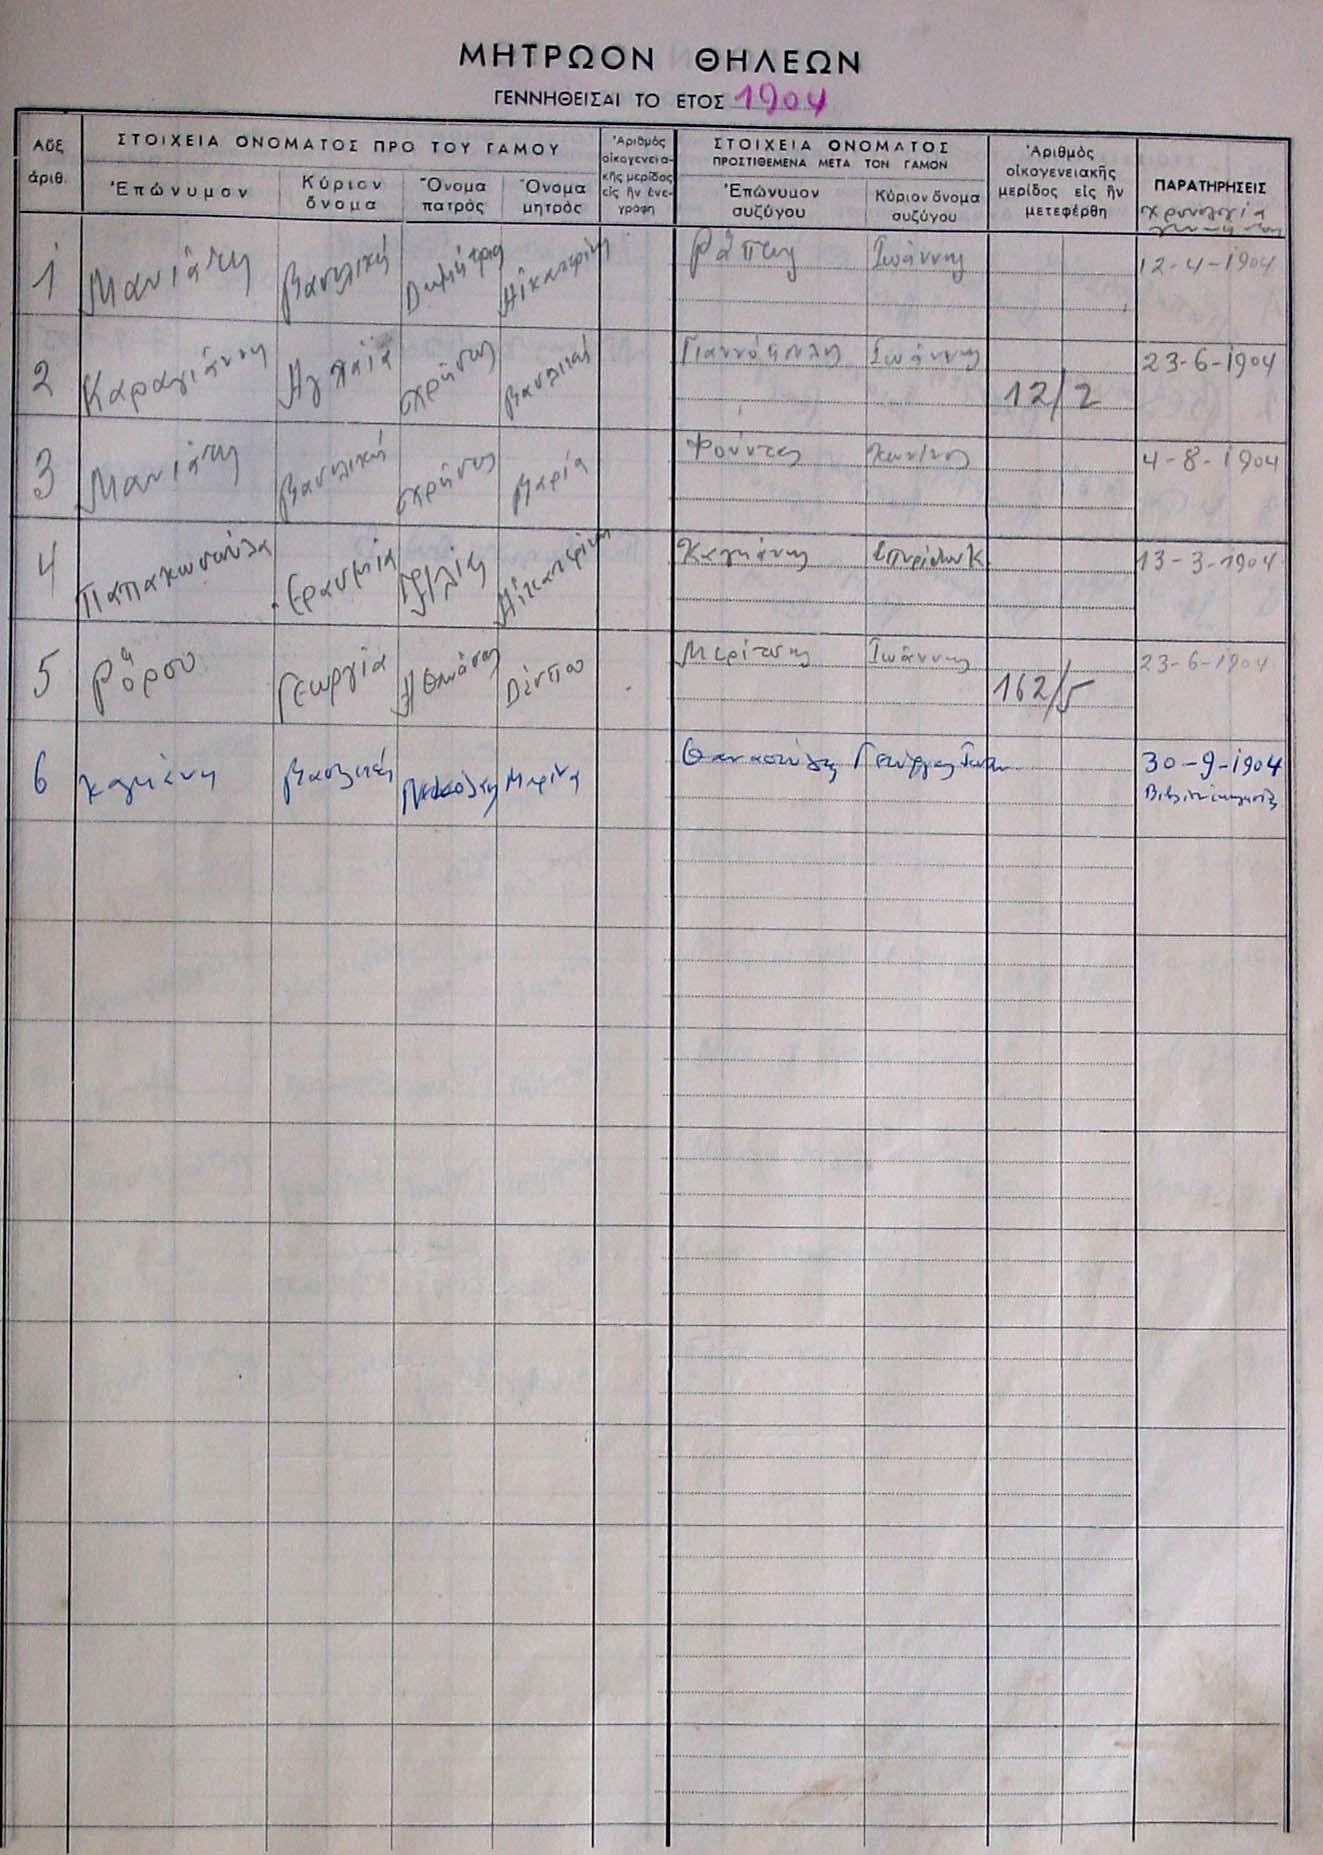 ΜΗΤΡΩΟΝ ΘΗΛΕΩΝ
ΓΕΝΝΗΘΕΙΣΑΙ ΤΟ ΕΤΟΣ 1904
Αὔξ. ἀριθ.
ΣΤΟΙΧΕΙΑ ΟΝΟΜΑΤΟΣ ΠΡΟ ΤΟΥ ΓΑΜΟΥ
Ἐπώνυμον
Κύριον ὄνομα
Ὄνομα πατρὸς
Ὄνομα μητρὸς
Ἀριθμὸς οἰκογενειακῆς μερίδος εἰς ἣν ἐνεγράφη
ΣΤΟΙΧΕΙΑ ΟΝΟΜΑΤΟΣ
ΠΡΟΣΤΙΘΕΜΕΝΑ ΜΕΤΑ ΤΟΝ ΓΑΜΟΝ
Ἐπώνυμον συζύγου
Κύριον ὄνομα συζύγου
Ἀριθμὸς οἰκογενειακῆς μερίδος εἰς ἣν μετεφέρθη
ΠΑΡΑΤΗΡΗΣΕΙΣ
χρονολογία
1 Μανιάτη Βασιλική Δημήτριος Αἰκατερίνη Ράπτης Ἰωάννης 12-4-1904
2 Καραγιάννη Ἀγλαΐα Χρῆστος Βασιλική Γιαννόπουλος Ἰωάννης 12/2 23-6-1904
3 Μανιάτη Βασιλική Χρῆστος Μαρία Φούντας Κων/νος 4-8-1904
4 Παπακωστούλα Ἐρασμία Ἠλίας Αἰκατερίνη Καγιάνης Σπυρίδων Κ 13-3-1904
5 Ρόρου Γεωργία Ἀθανάσιος Δέσπου Μερίτσης Ἰωάννης 162/5 23-6-1904
6 Καγιάνη Βασιλική Νικόλαος Μαρίνα Θανασούλας Γεώργιος Ἰωάν 30-9-1904